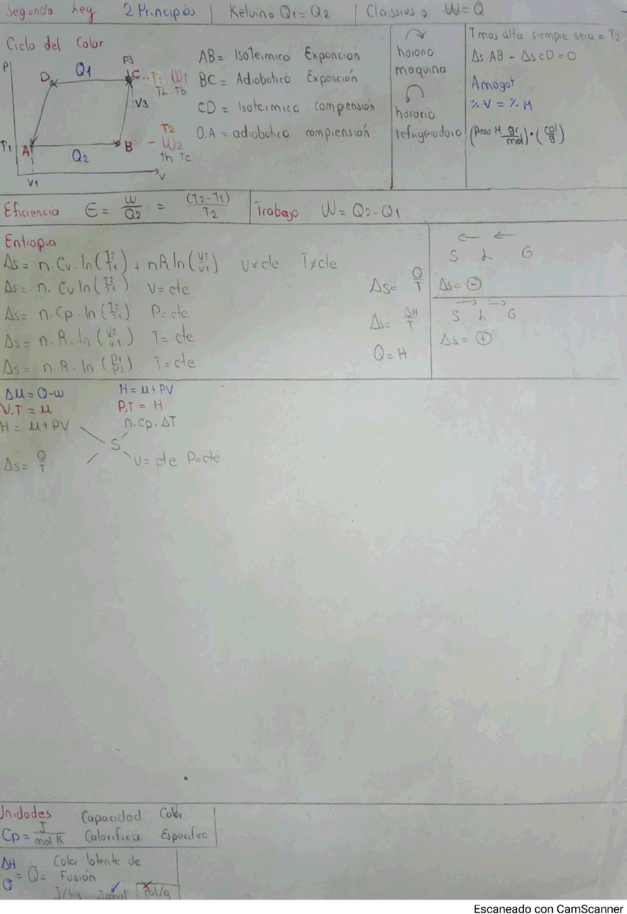 Segundo Ley 2 Principios | Kelvino Q1 = Q2 | Classius → W = Q
Ciclo del Calor
P
D Q1 P3 C
T1 W1
Th Tb
V3
T2
- W2
Th Tc
T1 A Q2 B
V1 V
AB = Isoteimico Exponcion
BC = Adiobotico Exponción
CD = Isoteimico compiension
D.A = adiobotico compiension
horono
maquina
horario
refrigerodoro
T mos alta siempe seia = T2
Δs AB - Δs CD = 0
Amagat
% V = % M
(Peso M gr/mol) · (cal/g)
Eficiencia Є = W/Q2 = (T2-T1)/T2 Trabajo W = Q2 - Q1
Entiopia
Δs = n. Cv. ln(T2/T1) + nR ln(V2/V1) V≠cte T≠cte
Δs = n. Cv ln(T2/T1) V= cte
Δs = n. Cp. ln(T2/T1) P= cte
Δs = n. R. ln(V2/V1) T= cte
Δs = n. R. ln(P1/P2) T= cte
Δs = Q/T
Δs = ΔH/T
Q = H
S L G
Δs = ⊖
S L G
Δs = ⊕
Δμ = Q-w H = μ + PV
V.T = μ P,T = H
H = μ + PV n.cp. ΔT
S
Δs = Q/T V= cte P= cte
Unidades Capacidad Calor
Cp = J/mol K Calorifica Especifico
ΔH Calor latente de
= Q = Fusión
J/kg cal/g
Escaneado con CamScanner